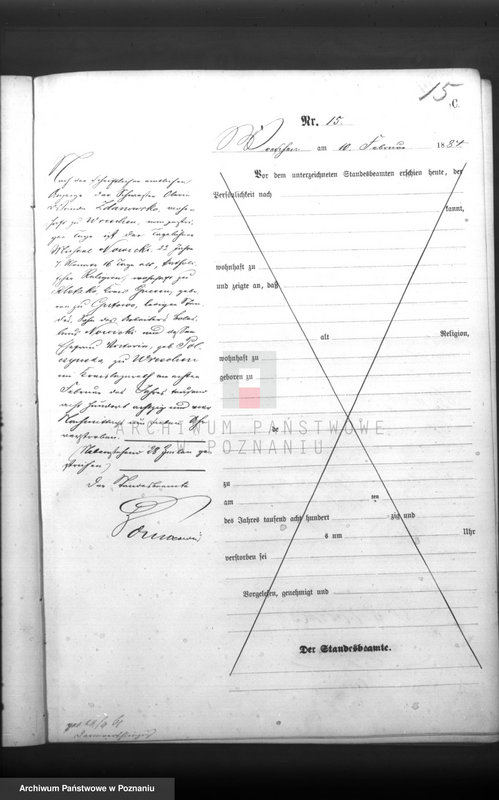 15
C.
Nr. 15.
Wreschen am 10. Februar 1884
Vor dem unterzeichneten Standesbeamten erschien heute, der
Persönlichkeit nach
kannt,
wohnhaft zu
und zeigte an, daß
alt Religion,
wohnhaft zu
geboren zu
de
zu
am ten
des Jahres tausend acht hundert zig und
s um Uhr
verstorben sei
Vorgelesen, genehmigt und
Der Standesbeamte.
Nach der schriftlichen amtlichen
Anzeige der
Zdanowska, wohn-
haft zu Wreschen, vom
Tage ist der
Michael Nowicki 22 Jahre
7 Monat 16 Tage alt, katholi-
scher Religion, wohnhaft zu
Kletzko Kreis Gnesen, gebo-
ren zu Gutowo,
des, Sohn des Arbeiters
Nowicki und dessen
Ehefrau Victoria, geb.
zu Wreschen
im Kreislazareth am achten
Februar des Jahres tausend
acht hundert achtzig und vier
Nachmittags um Uhr
verstorben.
28 Zeilen ge-
strichen)
Der Standesbeamte
ARCHIWUM PAŃSTWOWE
W POZNANIU
Archiwum Państwowe w Poznaniu